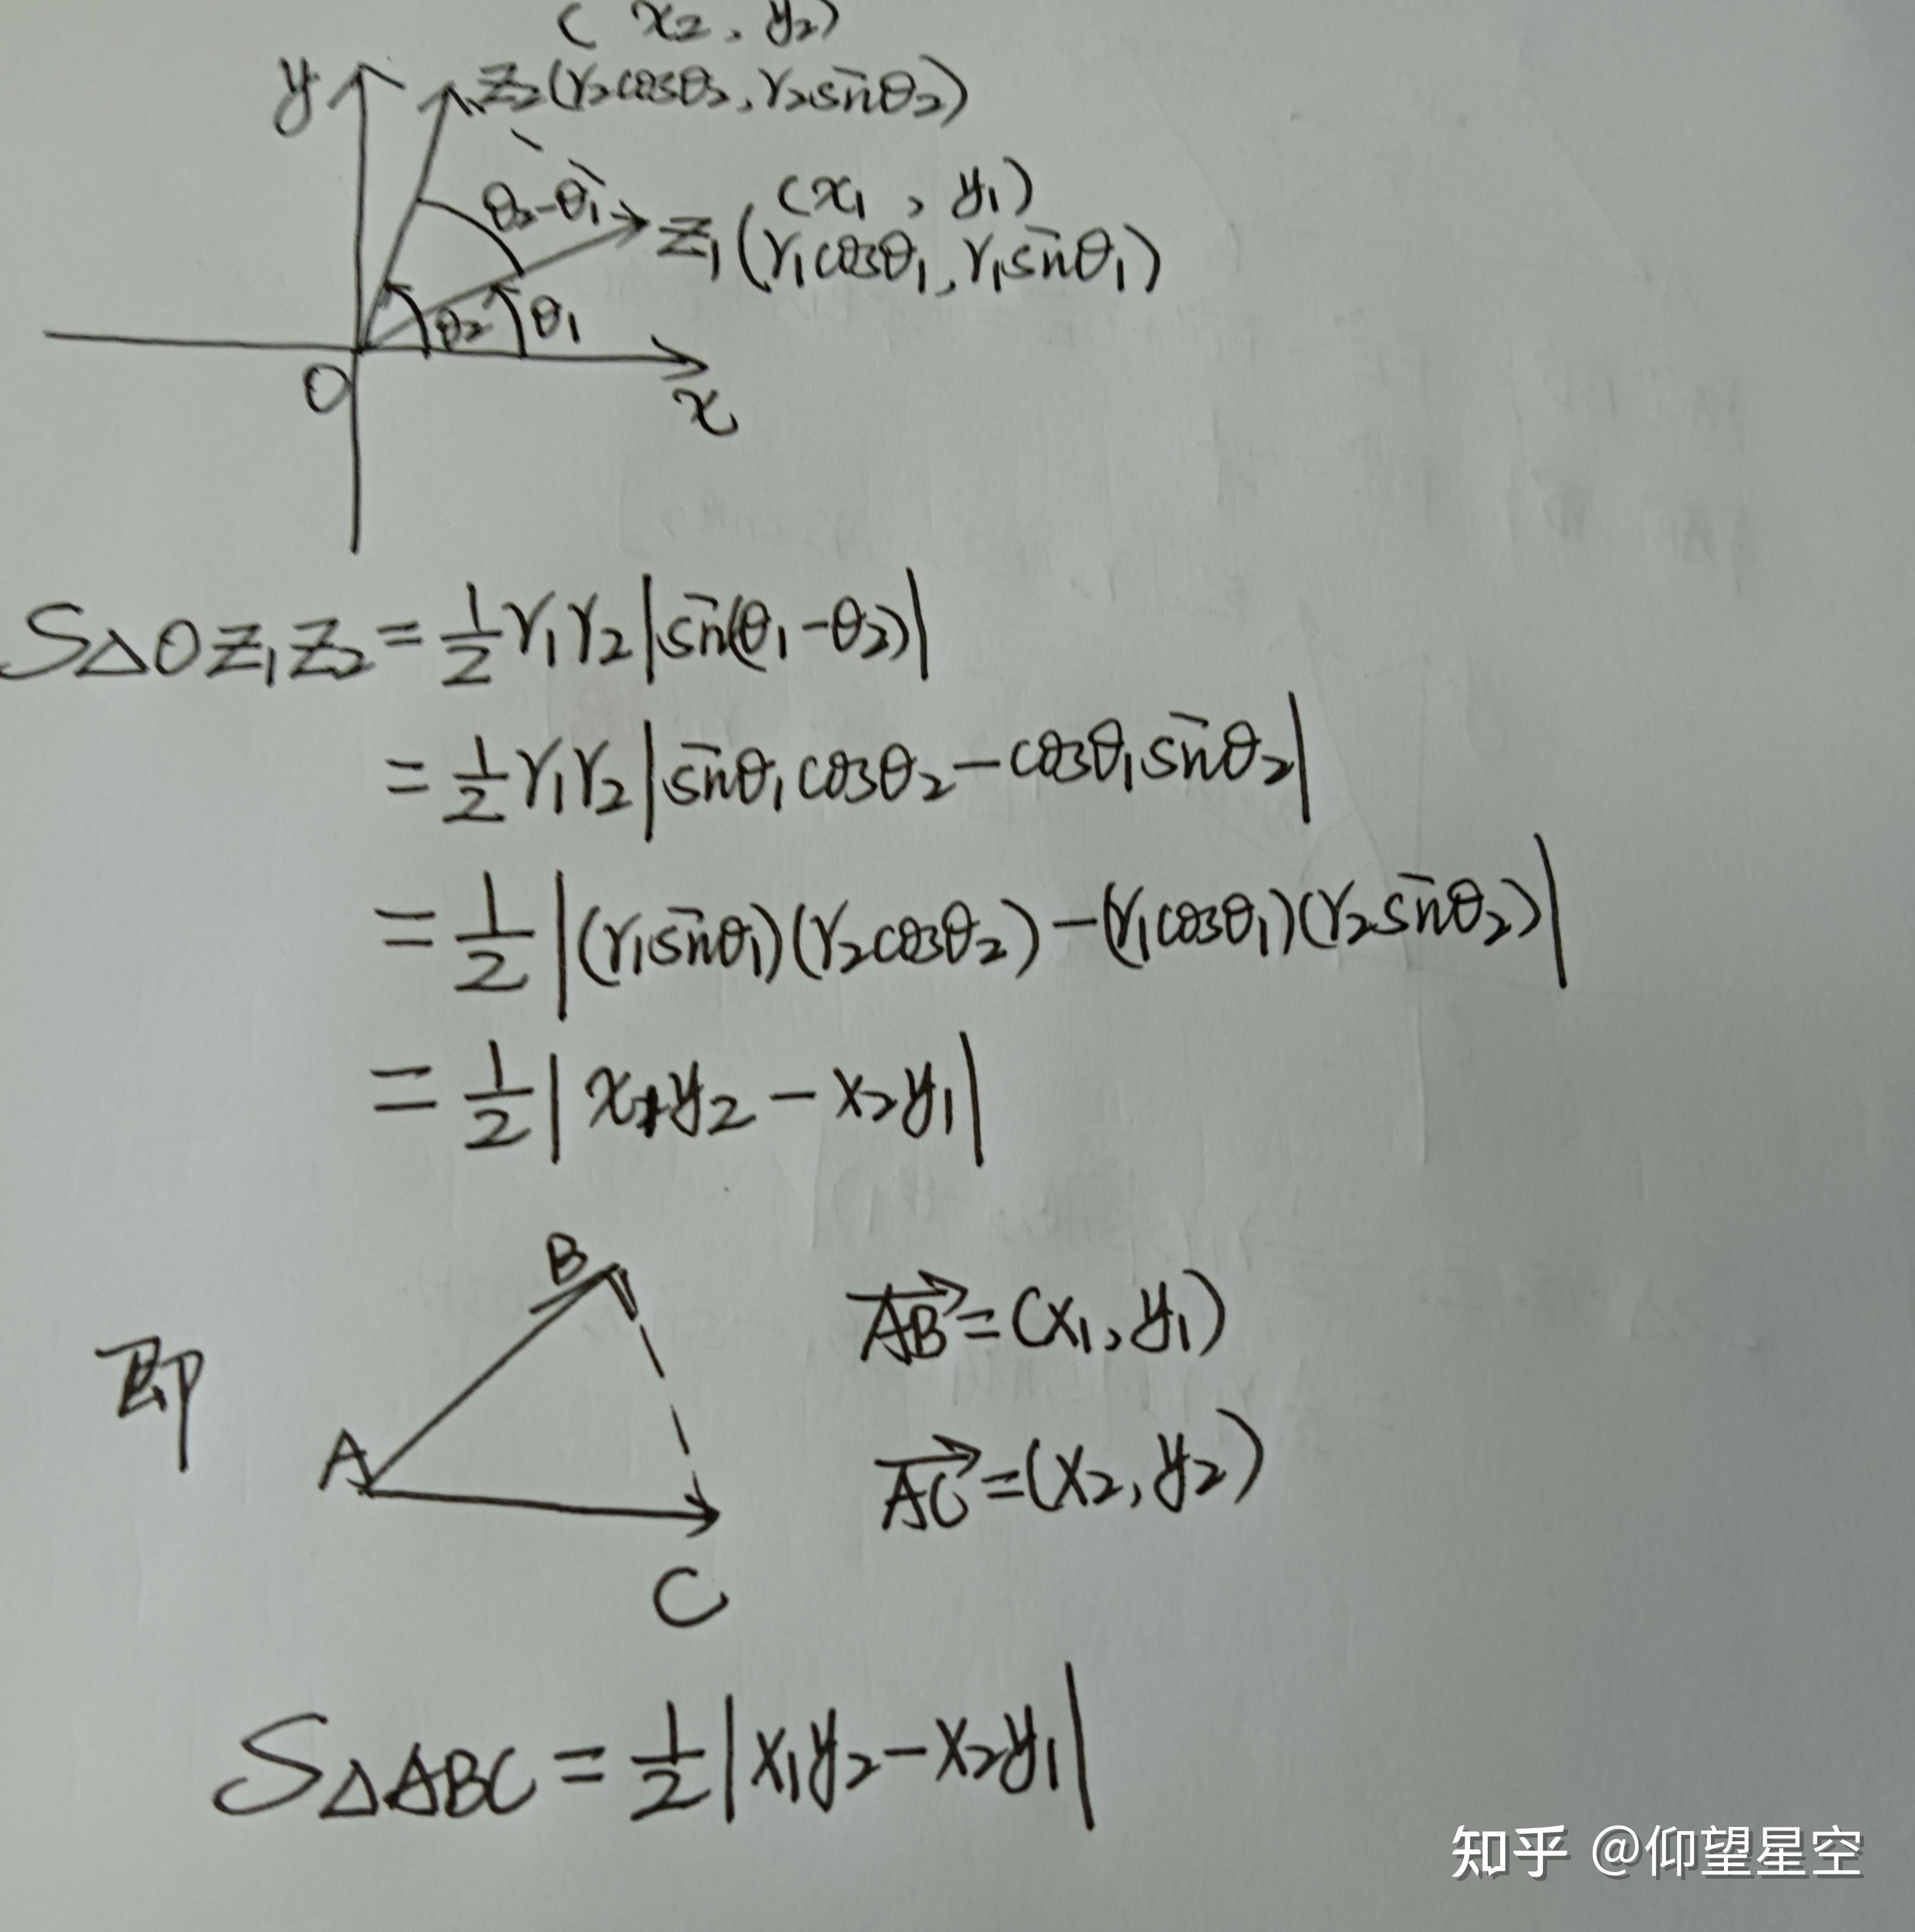 (x₂, y₂)
y
Z₂(r₂cosθ₂, r₂sinθ₂)
θ₂-θ₁
(x₁, y₁)
Z₁(r₁cosθ₁, r₁sinθ₁)
θ₂ θ₁
O
x
S△OZ₁Z₂ = ½r₁r₂|sin(θ₁-θ₂)|
= ½r₁r₂|sinθ₁cosθ₂-cosθ₁sinθ₂|
= ½|(r₁sinθ₁)(r₂cosθ₂)-(r₁cosθ₁)(r₂sinθ₂)|
= ½|x₁y₂-x₂y₁|
B
AB⃗=(x₁, y₁)
即
A
AC⃗=(x₂, y₂)
C
S△ABC = ½|x₁y₂-x₂y₁|
知乎 @仰望星空